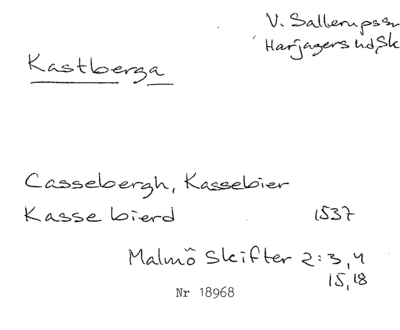 V. Sallerups sn
Harjagers hd, Sk
Kastberga
Cassebergh, Kassebier
Kasse bierd 1537
Malmö Skifter 2:3,4
15,18
Nr 18968